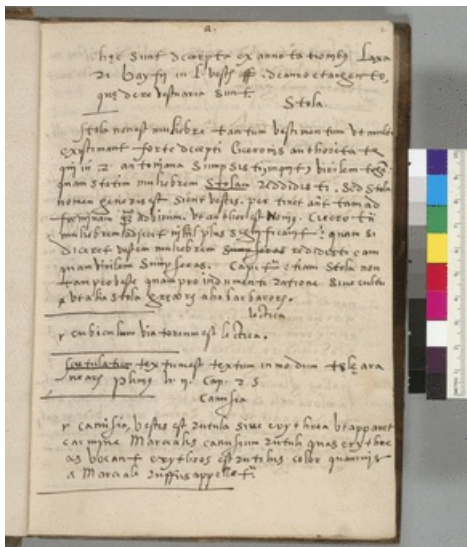 a.
hęc sunt decerpta ex annotationibus Laza
ri Bayfii in l. vestis ff. de auro et argento,
quę de re vestiaria sunt.
Stola.
Stola non est muliebre tantum vestimentum vt multi
existimant forte decepti Ciceronis authoritate
qui in 2 antoniana sumpsisti inquit virilem
quam statim muliebrem Stolam reddidisti. Sed Stola
nomen generis est sicut vestis. pertinet aut tam ad
fœminam ad virum. vt author est Noni. Cicero
muliebrem adjecit nihil plus significant quam si
diceret vestem muliebrem reddidisti eam
quam virilem sumpseras. Capi etiam Stola non
tam pro veste quam pro indumenti ratione sive cultu
vt alia stola gręcos alia barbaros.
lectica
r cubiculum viatorium est lectica.
scutulatum textum est textum in modum telę ara
nearum Plinius li. 11. Cap. 25
Canusia
r canusia, vestis est rutula sive erythrea vt apparet
carmine Marcialis canusium rutuli quas erythre
as vocant erythreos est rutilus color quamvis
a Marciali ruffus appelletur.